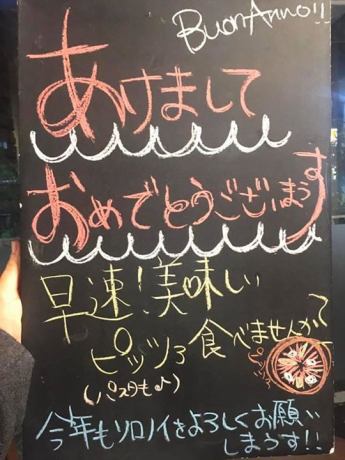 Buon Anno!!
あけまして
おめでとうございます
早速!美味しい
ピッツァ食べませんか?
(パスタも♪)
ピッツァ
今年もソロノイをよろしくお願い
します!!